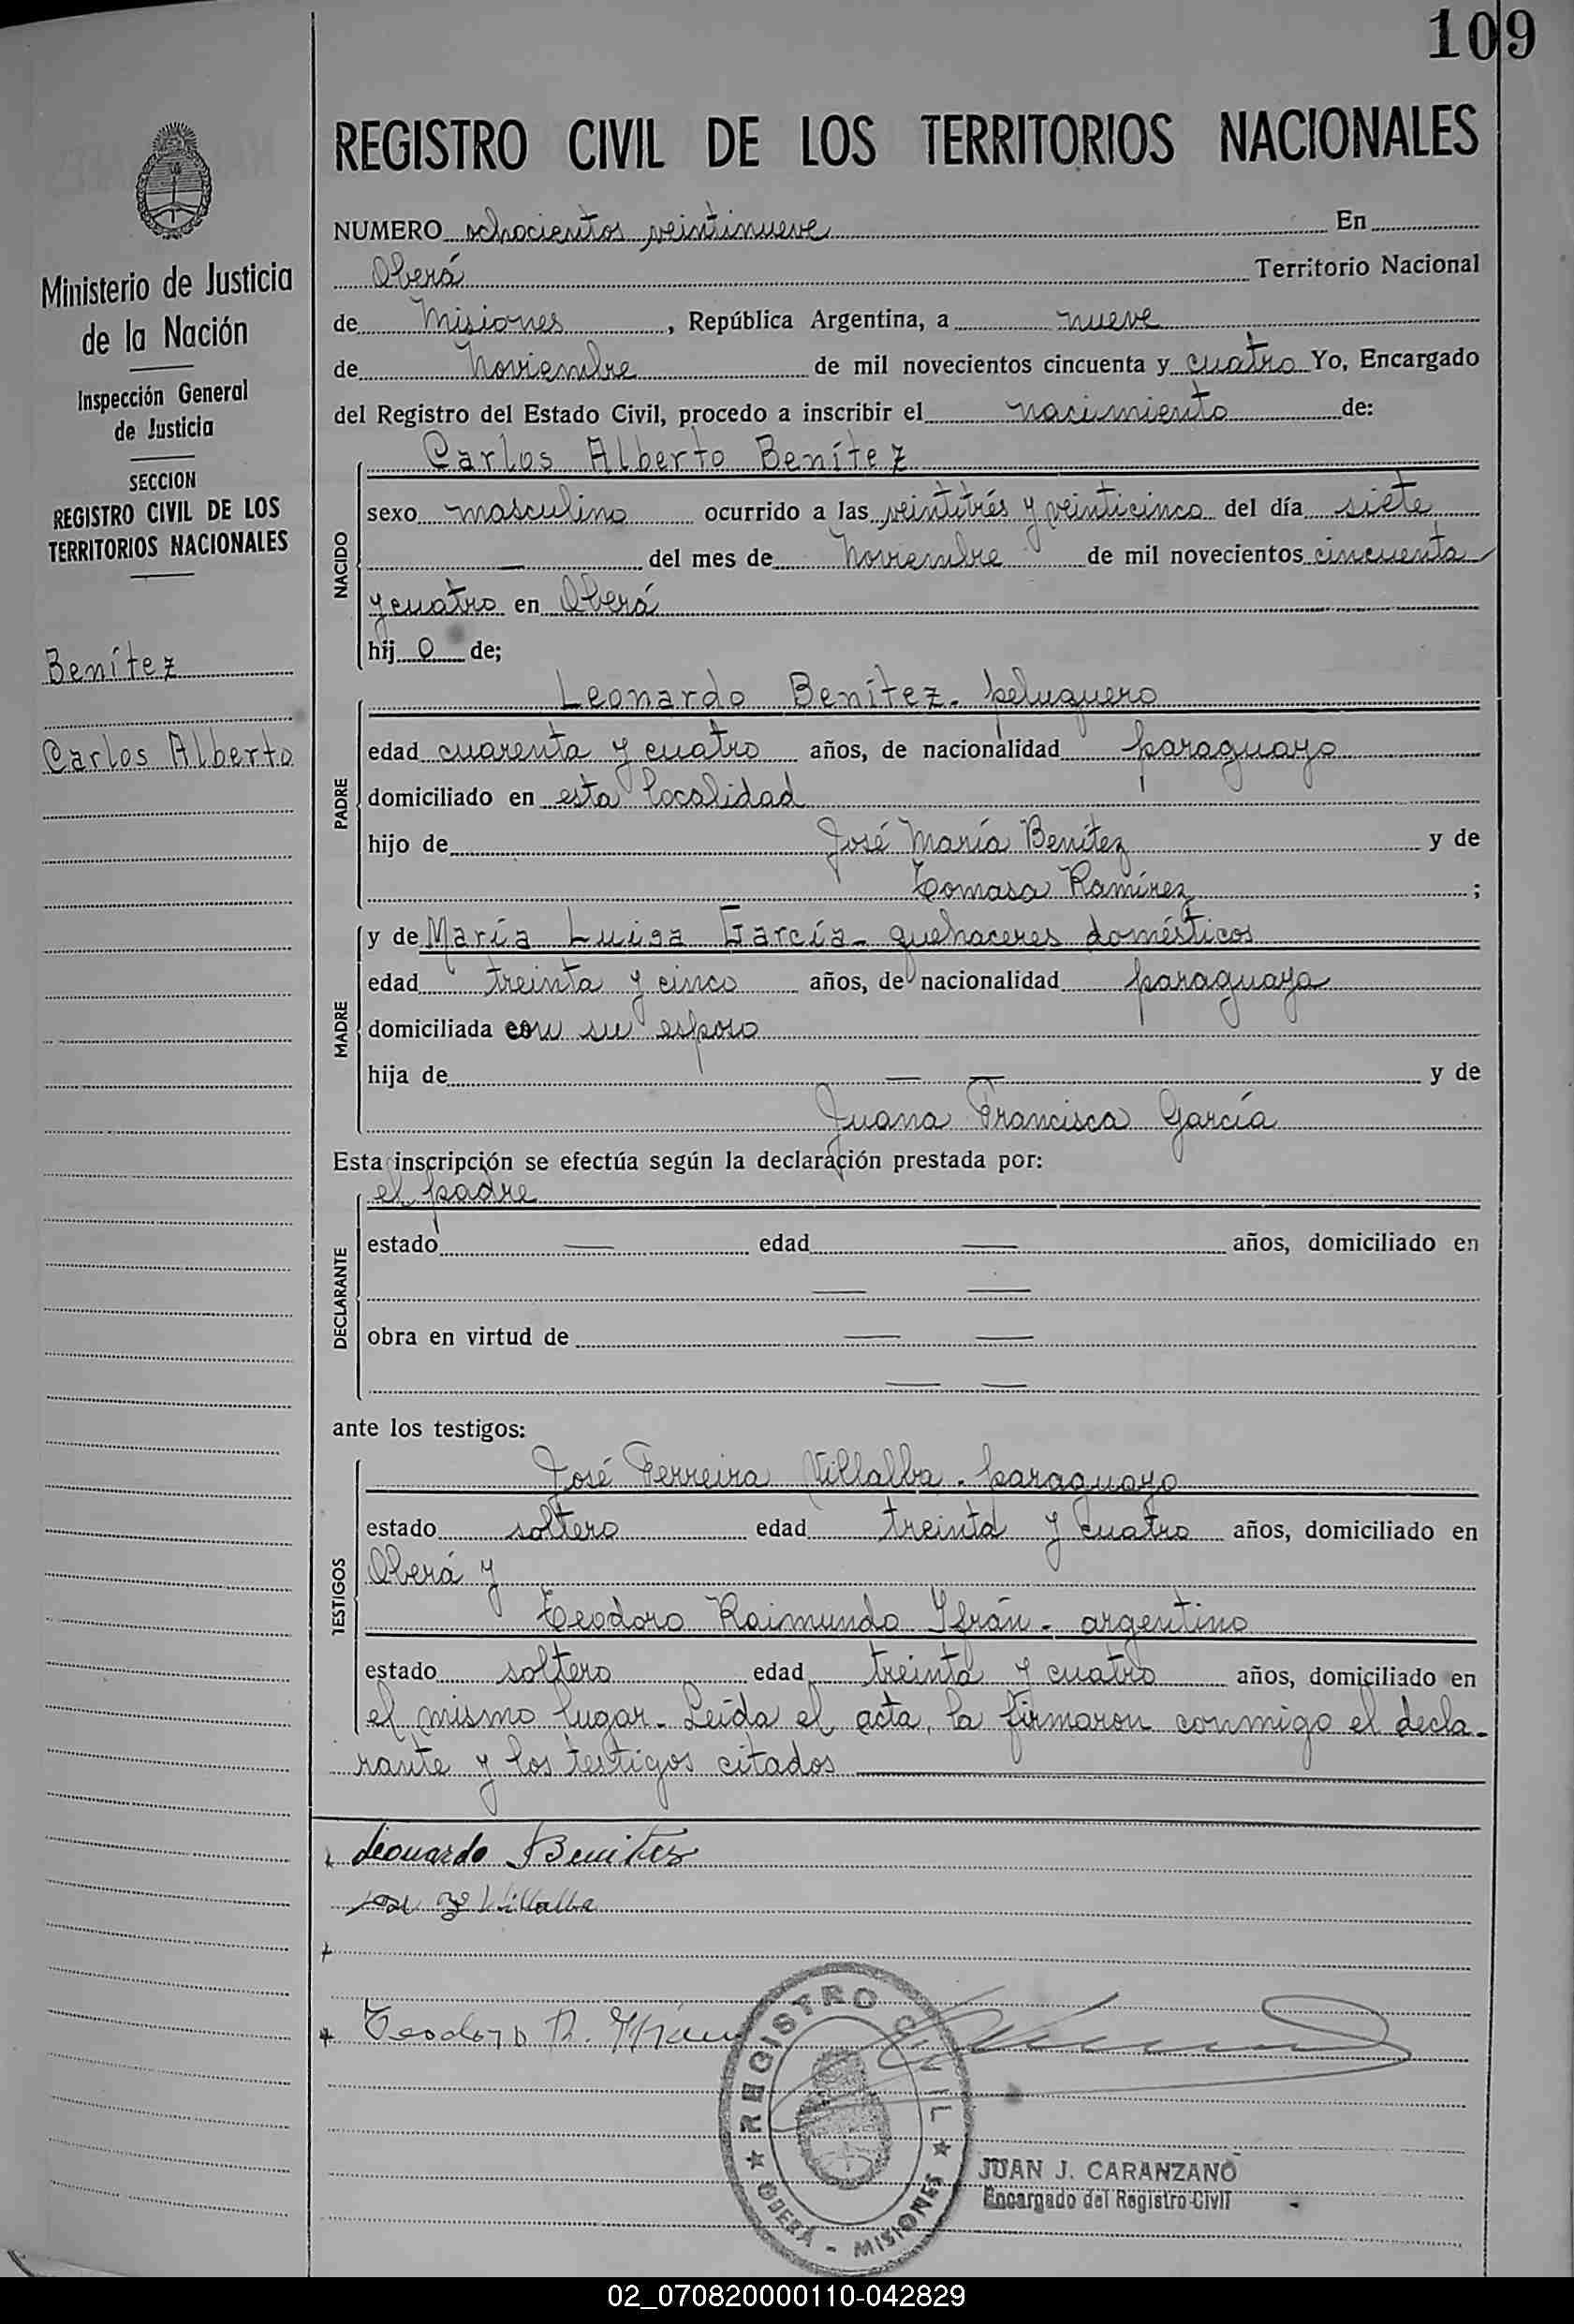 109
REGISTRO CIVIL DE LOS TERRITORIOS NACIONALES
Ministerio de Justicia
de la Nación
Inspección General
de Justicia
SECCION
REGISTRO CIVIL DE LOS
TERRITORIOS NACIONALES
Benítez
Carlos Alberto
NUMERO ochocientos veintinueve En
Oberá Territorio Nacional
de Misiones, República Argentina, a nueve
de Noviembre de mil novecientos cincuenta y cuatro Yo, Encargado
del Registro del Estado Civil, procedo a inscribir el nacimiento de:
NACIDO
Carlos Alberto Benítez
sexo masculino ocurrido a las veintitrés y veinticinco del día siete
— del mes de Noviembre de mil novecientos cincuenta
y cuatro en Oberá
hijo de;
PADRE
Leonardo Benítez - peluquero
edad cuarenta y cuatro años, de nacionalidad paraguayo
domiciliado en esta localidad
hijo de José María Benítez y de
Tomasa Ramírez;
MADRE
y de María Luisa García - quehaceres domésticos
edad treinta y cinco años, de nacionalidad paraguaya
domiciliada con su esposo
hija de — — y de
Juana Francisca García
Esta inscripción se efectúa según la declaración prestada por:
DECLARANTE
el padre
estado — edad — años, domiciliado en
— —
obra en virtud de — —
— —
ante los testigos:
TESTIGOS
José Ferreira Villalba - paraguayo
estado soltero edad treinta y cuatro años, domiciliado en
Oberá y
Teodoro Raimundo Yfrán - argentino
estado soltero edad treinta y cuatro años, domiciliado en
el mismo lugar - Leída el acta, la firmaron conmigo el decla-
rante y los testigos citados
Leonardo Benitez
José F Villalba
Teodoro R. Yfrán
REGISTRO CIVIL
OBERÁ - MISIONES
JUAN J. CARANZANO
Encargado del Registro Civil
02_070820000110-042829